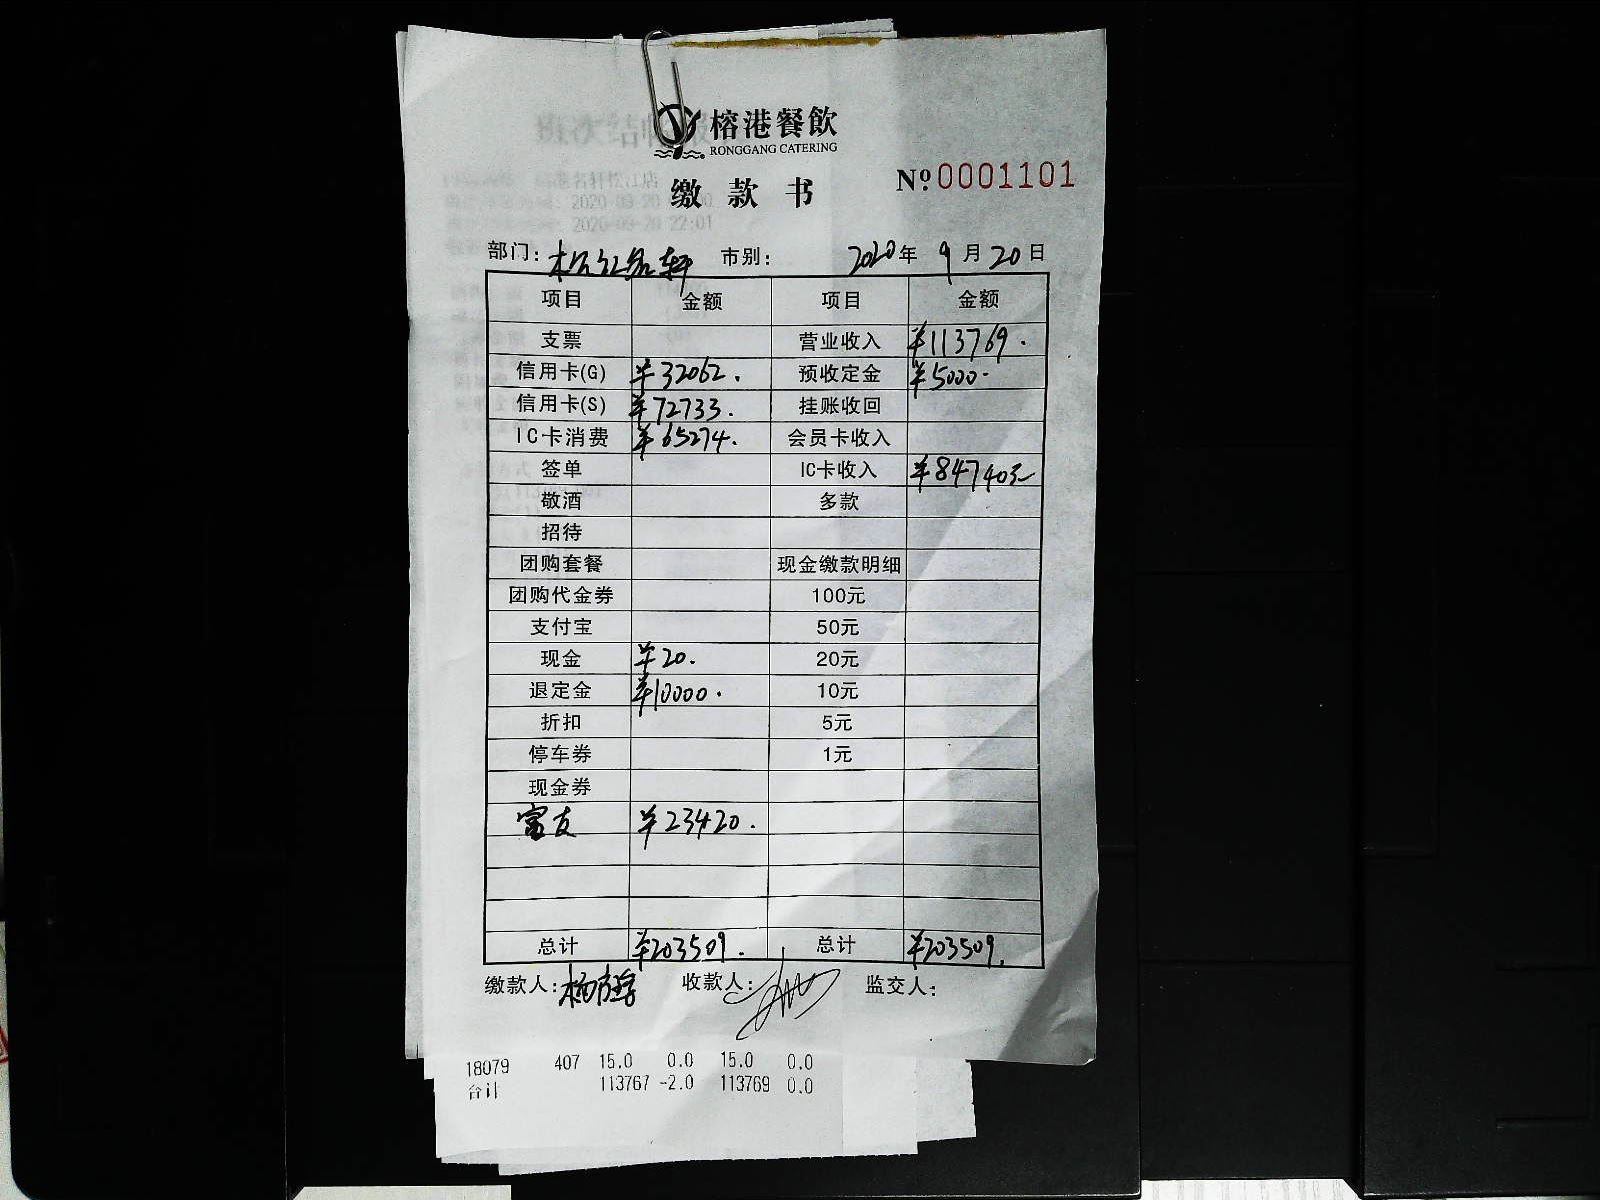 榕港餐飲
RONGGANG CATERING
缴款书
№0001101
部门：松江名轩 市别： 2020年 9月20日
项目 金额 项目 金额
支票 营业收入 ¥113769.
信用卡(G) ¥32062. 预收定金 ¥5000.
信用卡(S) ¥72733. 挂账收回
IC卡消费 ¥65274. 会员卡收入
签单 IC卡收入
敬酒 多款
招待
团购套餐 现金缴款明细
团购代金券 100元
支付宝 50元
现金 ¥20. 20元
退定金 ¥10000. 10元
折扣 5元
停车券 1元
现金券
富友 ¥23420.
总计 ¥203509. 总计 ¥203509.
缴款人： 收款人： 监交人：
18079 407 15.0 0.0 15.0 0.0
合计 113767 -2.0 113769 0.0